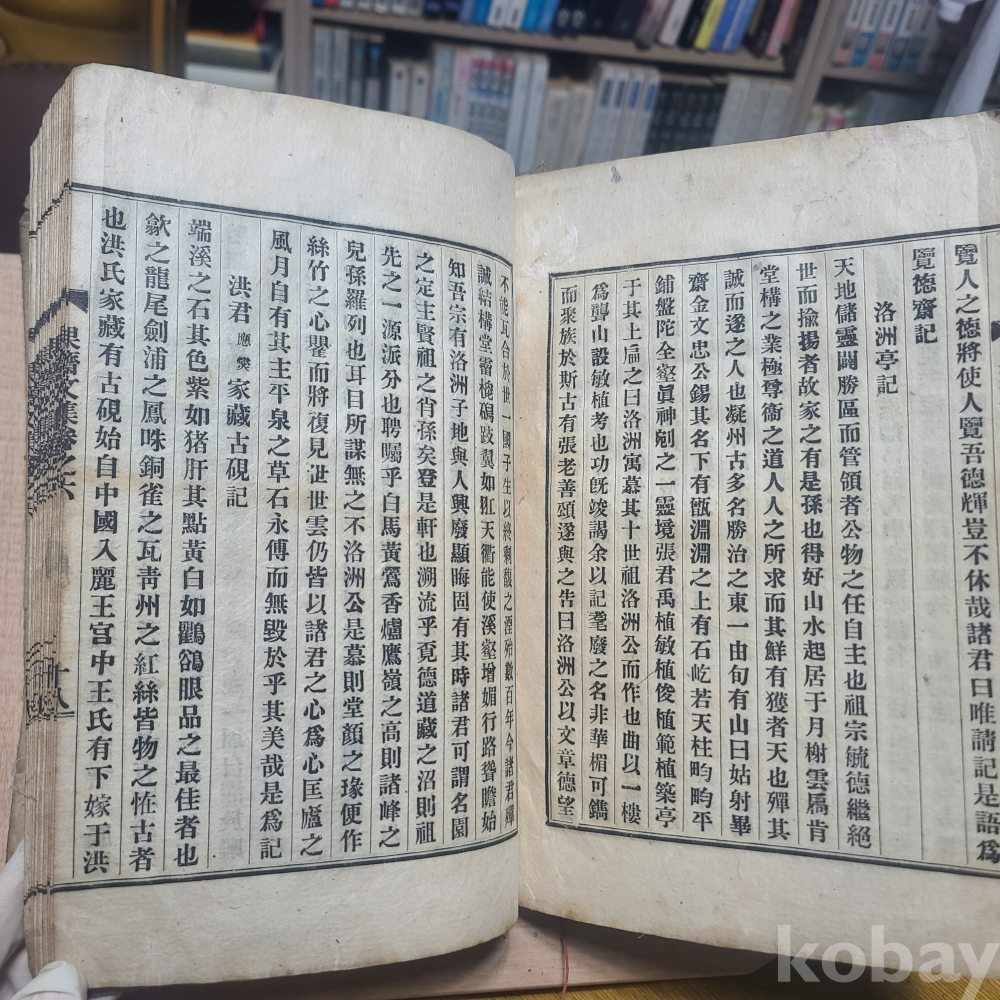 覽人之德將使人覽吾德輝豈不休哉諸君曰唯請記是語爲
覽德齋記
洛洲亭記
天地儲靈闢勝區而管領者公物之任自主也祖宗毓德繼絕
世而揄揚者故家之有是孫也得好山水起居于月榭雲扃肯
堂構之業極尊衛之道人人之所求而其鮮有獲者天也殫其
誠而遂之人也凝州古多名勝治之東一由旬有山曰姑射畢
齋金文忠公錫其名下有甑淵淵之上有石屹若天柱畇畇平
鋪盤陀全壑眞神剜之一靈境張君禹植敏植俊植範植築亭
于其上扁之曰洛洲寓慕其十世祖洛洲公而作也曲以一樓
爲聾山設敏植考也功旣竣謁余以記耋廢之名非華楣可鐫
而聚族於斯古有張老善頌遂與之告曰洛洲公以文章德望
不能瓦合於世一國子生以終剩馥之湮殆數百年今諸君殫
誠結構堂霤梲碣跂翼如矼天衢能使溪壑增媚行路聳瞻始
知吾宗有洛洲子地與人興廢顯晦固有其時諸君可謂名園
之定主賢祖之肖孫矣登是軒也溯流乎覓德道藏之沼則祖
先之一源派分也聘矚乎白馬黃鶯香爐鷹嶺之高則諸峰之
兒孫羅列也耳目所謀無之不洛洲公是慕則堂顔之瑑便作
絲竹之心瞿而將復見世世雲仍皆以諸君之心爲心匡廬之
風月自有其主平泉之草石永傳而無毀於乎其美哉是爲記
洪君應燮家藏古硯記
端溪之石其色紫如猪肝其點黃白如鸜鵒眼品之最佳者也
歙之龍尾劍浦之鳳咮銅雀之瓦靑州之紅絲皆物之恠古者
也洪氏家藏有古硯始自中國入麗王宮中王氏有下嫁于洪
文集卷之六
十八
kobay